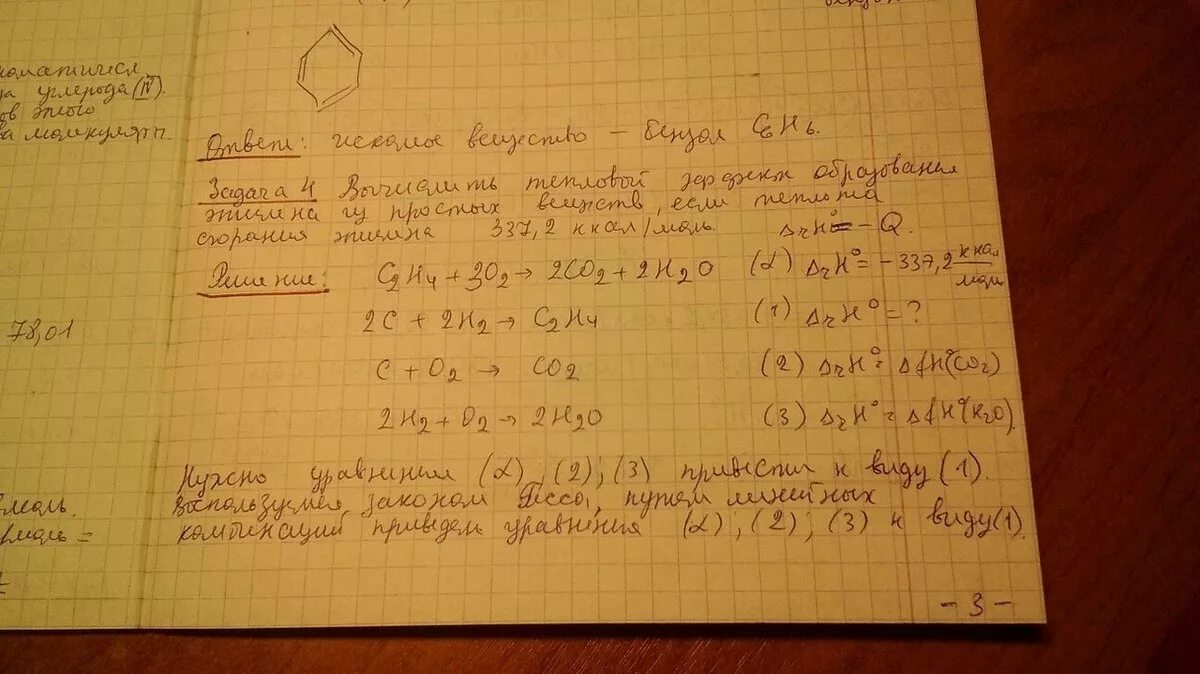 бензол
углерода (IV).
этого
молекулы.
Ответ: искомое вещество – бензол C6H6.
Задача 4 Вычислить тепловой эффект образования
этилена из простых веществ, если теплота
сгорания этилена 337,2 ккал/моль. ΔrH° = – Q.
Решение: C2H4 + 3O2 → 2CO2 + 2H2O (α) ΔrH° = – 337,2 ккал/моль
2C + 2H2 → C2H4 (1) ΔrH° = ?
78,01
C + O2 → CO2 (2) ΔrH° = ΔfH°(CO2)
2H2 + O2 → 2H2O (3) ΔrH° = ΔfH°(H2O).
Нужно уравнения (α), (2), (3) привести к виду (1).
моль.
Воспользуемся законом Гесса, путем линейных
моль =
комбинаций приведем уравнения (α), (2), (3) к виду (1).
- 3 -